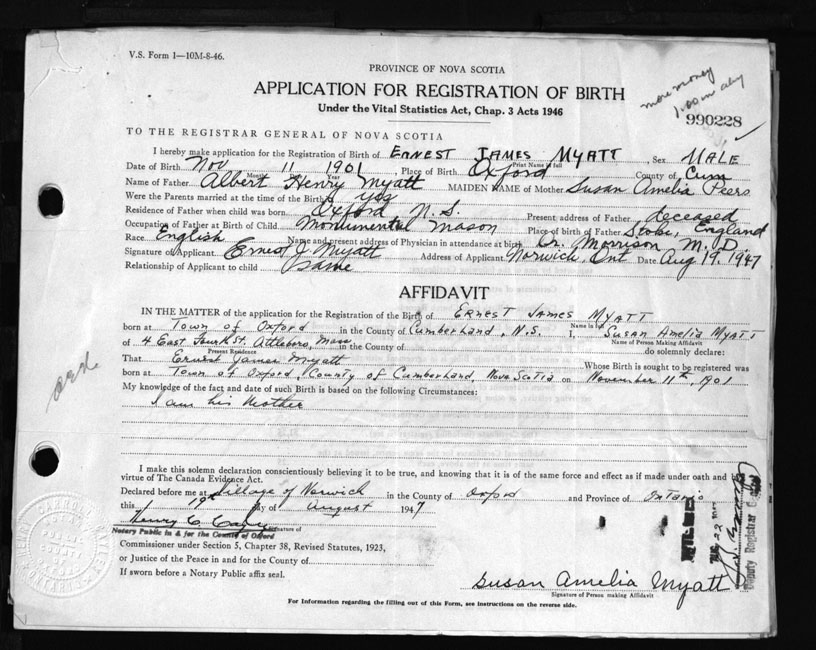 V.S. Form 1—10M-8-46.
more money
PROVINCE OF NOVA SCOTIA
APPLICATION FOR REGISTRATION OF BIRTH
Under the Vital Statistics Act, Chap. 3 Acts 1946
990228
TO THE REGISTRAR GENERAL OF NOVA SCOTIA
I hereby make application for the Registration of Birth of ERNEST JAMES MYATT, Sex MALE
Print Name in full
Date of Birth Nov 11 1901, Place of Birth Oxford County of Cum
Month Year
Name of Father Albert Henry Myatt MAIDEN NAME of Mother Susan Amelia Peers
Were the Parents married at time of the Birth yes
Residence of Father when child was born Oxford N.S. Present address of Father deceased
Occupation of Father at Birth of Child Monumental Mason Place of birth of Father Stoke, England
Race English Name and present address of Physician in attendance at birth Dr. Morrison M.D.
Signature of Applicant Ernest J Myatt Address of Applicant Norwich, Ont Date Aug 19, 1947
Relationship of Applicant to child Same
AFFIDAVIT
IN THE MATTER of the application for the Registration of the Birth of ERNEST JAMES MYATT
Name in full
born at Town of Oxford in the County of Cumberland, N.S. I, Susan Amelia MYATT
Name of Person Making Affidavit
of 4 East Fourth St. Attleboro, Mass in the County of do solemnly declare:
Present Residence
That Ernest James Myatt Whose Birth is sought to be registered was
born at Town of Oxford, County of Cumberland, Nova Scotia on November 11th, 1901
My knowledge of the fact and date of such Birth is based on the following Circumstances:
I am his Mother
I make this solemn declaration conscientiously believing it to be true, and knowing that it is of the same force and effect as if made under oath and by
virtue of The Canada Evidence Act.
Declared before me at Village of Norwich in the County of Oxford and Province of Ontario
this 19th day of August 1947
Henry C.
Signature of
Notary Public in & for the County of Oxford
Commissioner under Section 5, Chapter 38, Revised Statutes, 1923,
or Justice of the Peace in and for the County of
If sworn before a Notary Public affix seal.
FILED
AUG 22
Deputy Registrar
Susan Amelia Myatt
Signature of Person making Affidavit
For Information regarding the filling out of this Form, see instructions on the reverse side.